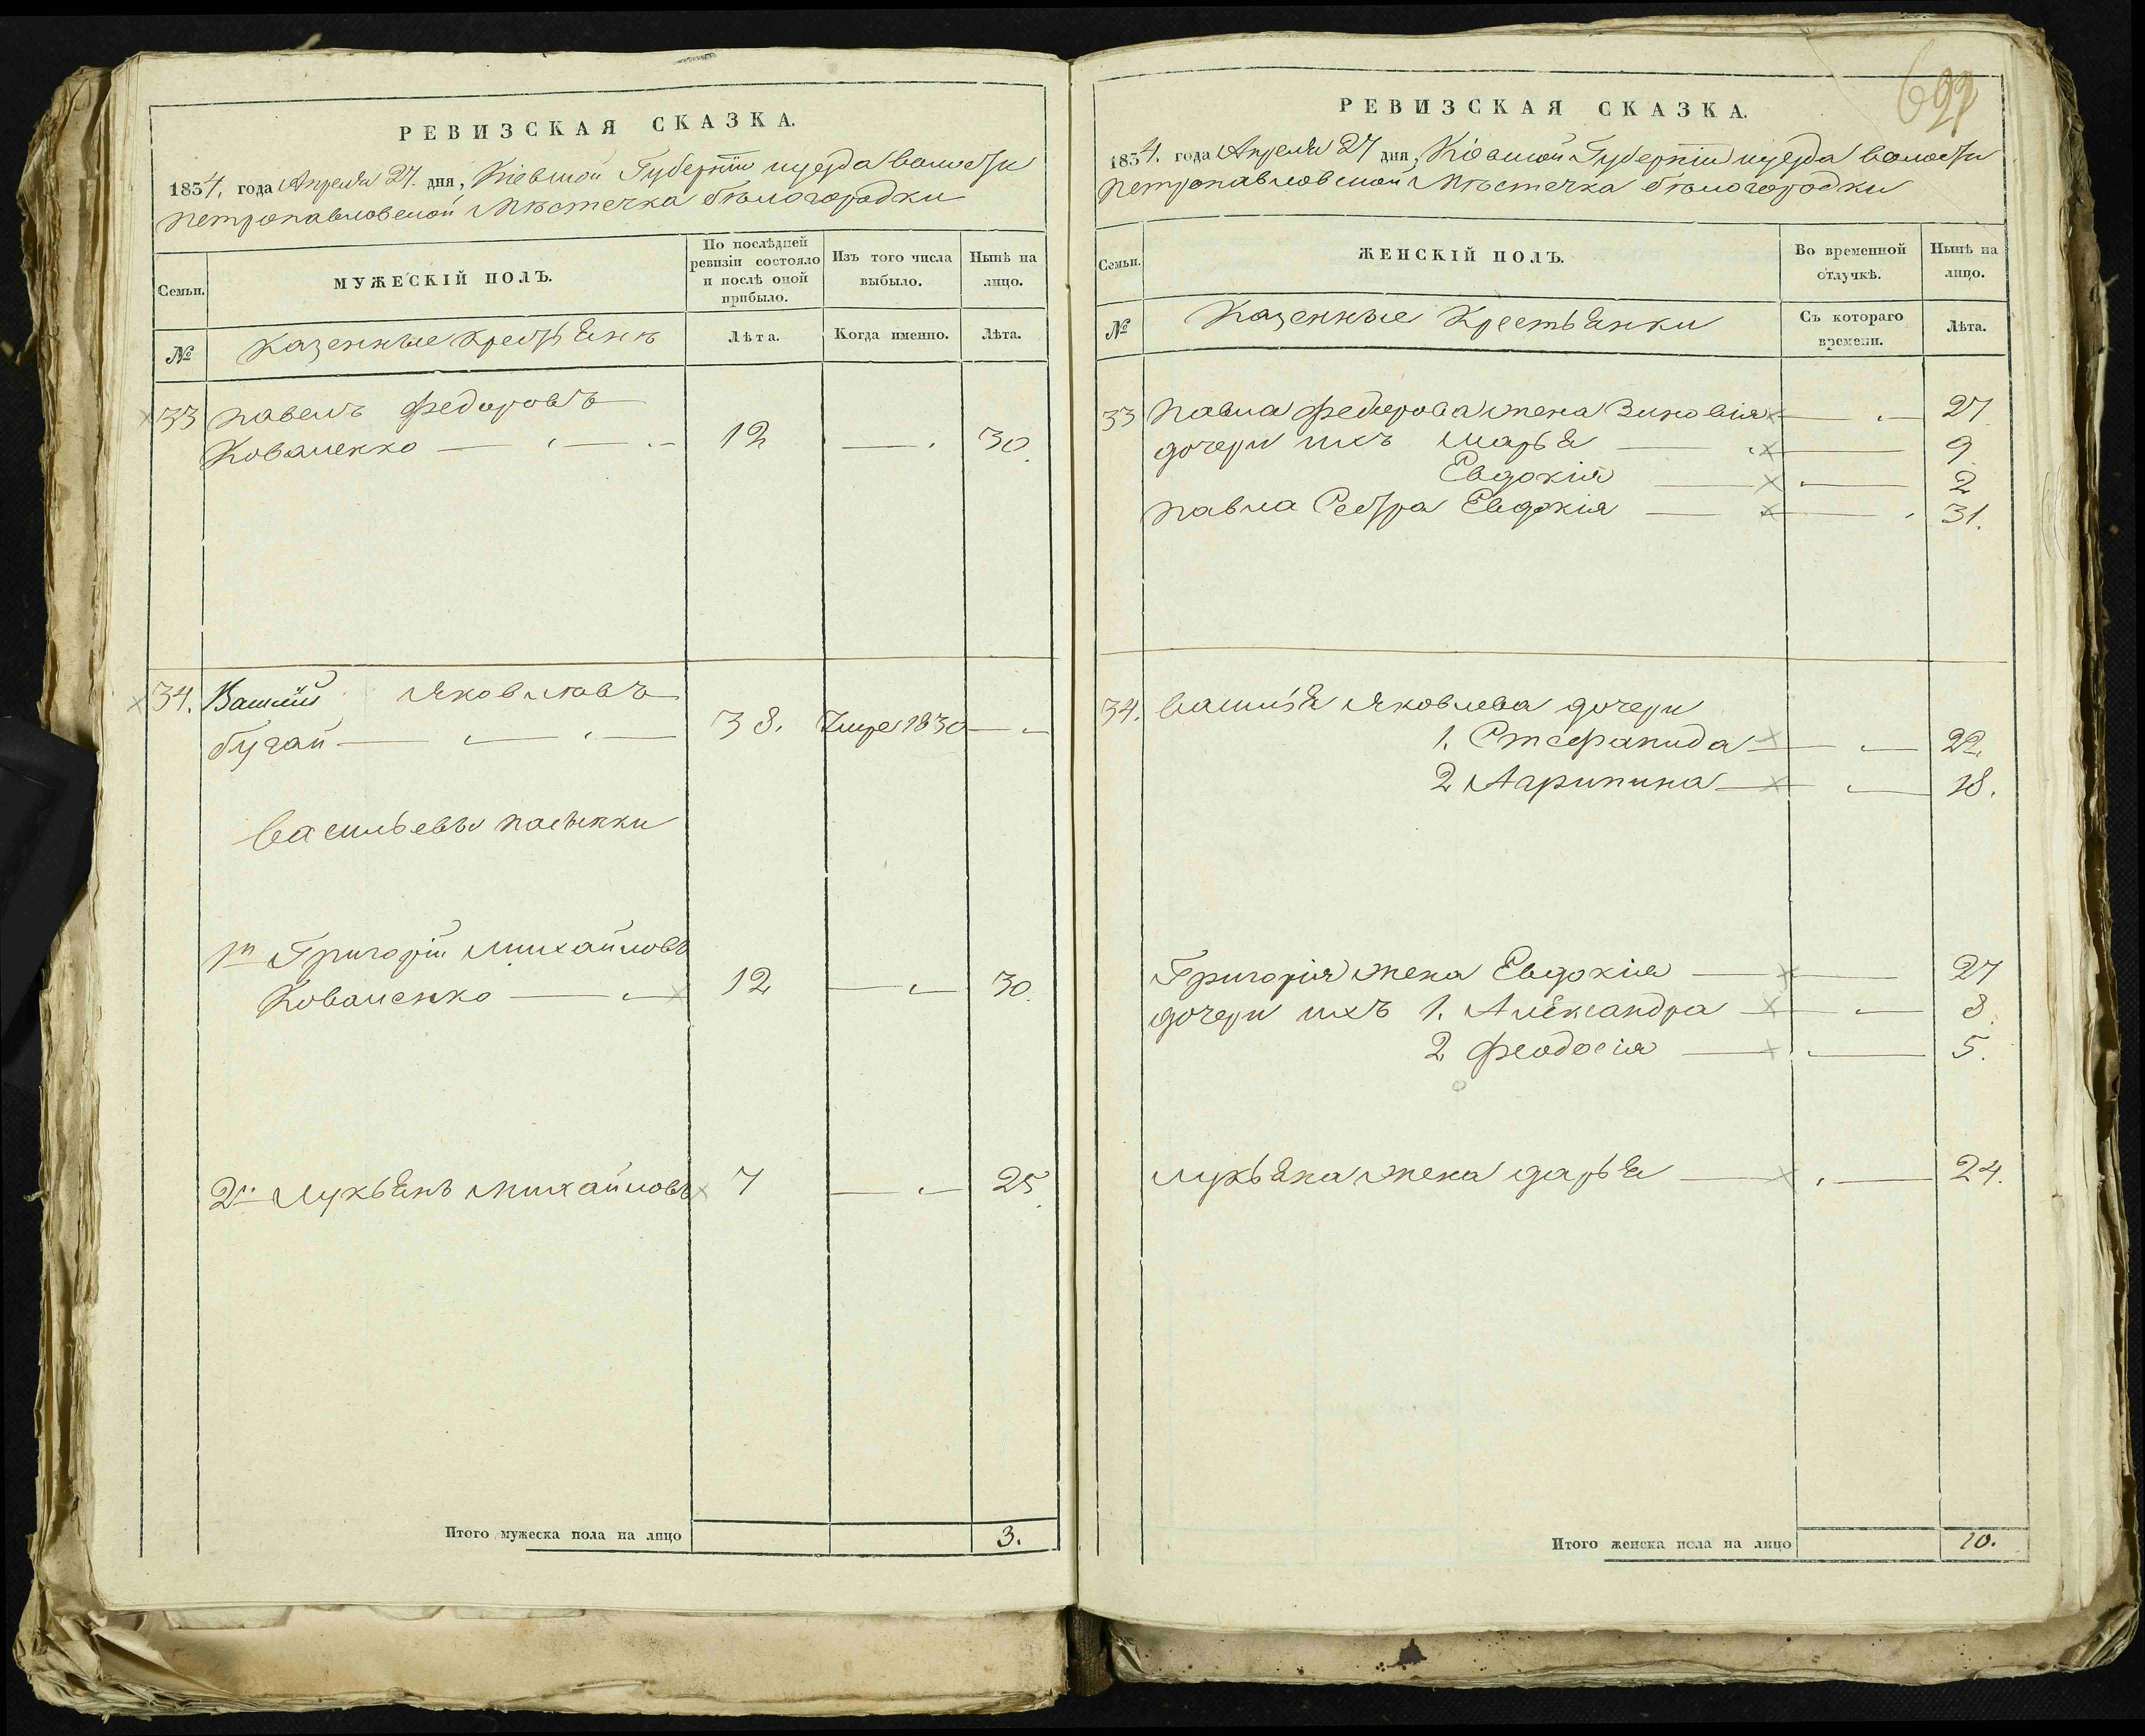 РЕВИЗСКАЯ СКАЗКА.
1854. года Апреля 27. дня, Кіевской Губерніи уезда волости
Петропавловской Мѣстечка бѣлогородки
Семьи.
МУЖЕСКІЙ ПОЛЪ.
По послѣдней ревизіи состояло и послѣ оной прибыло.
Изъ того числа выбыло.
Нынѣ на лицо.
№
Казенные Крестьянѣ
Лѣта.
Когда именно.
Лѣта.
33 павелъ Федоровъ
Коваленко 12 30.
34. Василій Яковлевъ
бугай 38. Умре 1850
Васильевы пасынки
1й Григорій Михайловъ
Коваленко 12 30.
2й Лукьянъ Михайловъ 7 25.
Итого мужеска пола на лицо 3.
699
РЕВИЗСКАЯ СКАЗКА.
1854. года Апреля 27 дня, Кіевской Губерніи уезда волости
Петропавловской Мѣстечка бѣлогородки
Семьи.
ЖЕНСКІЙ ПОЛЪ.
Во временной отлучкѣ.
Нынѣ на лицо.
№
Казенные Крестьянки
Съ котораго времени.
Лѣта.
33 павла Федорова жена Зиновія 27
дочери ихъ Марья 9
Евдокія 2
павла Сестра Евдокія 31.
34. Василья Яковлева дочери
1. Стефанида 22.
2 Агрипина 18.
Григорія жена Евдокія 27
дочери ихъ 1. Александра 8.
2 Феодосія 5.
лукьяна жена дарья 24.
Итого женска пола на лицо 10.